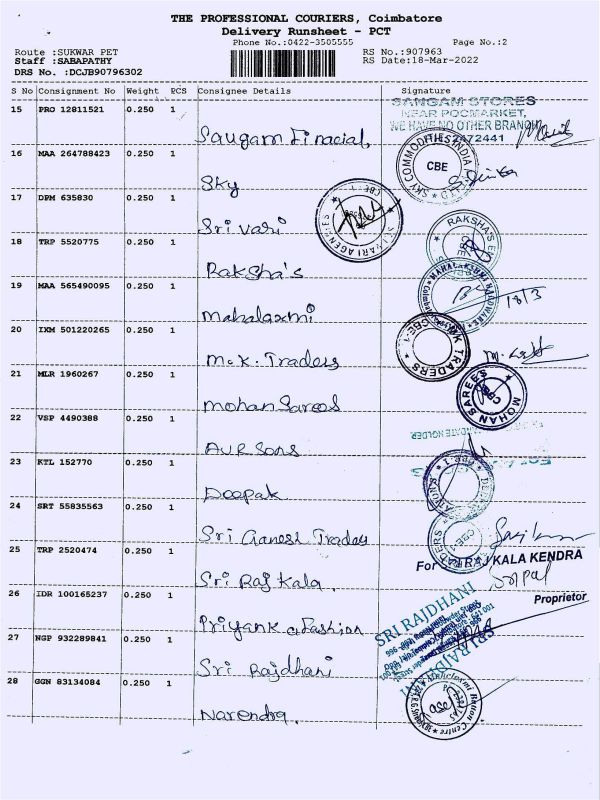 THE PROFESSIONAL COURIERS, Coimbatore
Delivery Runsheet - PCT
Phone No.:0422-3505555 Page No.:2
Route :SUKWAR PET RS No.:907963
Staff :SABAPATHY RS Date:18-Mar-2022
DRS No. :DCJB90796302
S No Consignment No Weight PCS Consignee Details Signature
15 PRO 12811521 0.250 1 Saugam Finacial,
SANGAM STORES
NEAR POCMARKET,
WE HAVE NO OTHER BRANCH
2472441
16 MAA 264788423 0.250 1 Sky
SKY COMMODITIES INDIA
CBE
17 DPM 635830 0.250 1 Sri vari
SRI VARI AGENCIES
CBE-1
18 TRP 5520775 0.250 1 Raksha's
RAKSHA'S
19 MAA 565490095 0.250 1 Mahalaxmi
MAHALAKSHMI
18/3
20 IXM 501220265 0.250 1 M.K. Traders
MK TRADERS
CBE-1
21 MLR 1960267 0.250 1 Mohan Sarees
MOHAN SAREES
CBE
22 VSP 4490388 0.250 1 AVR Sons
23 KTL 152770 0.250 1 Deepak
24 SRT 55835563 0.250 1 Sri Ganesh Traders
CBE-1
25 TRP 2520474 0.250 1 Sri Raj Kala.
For SRI RAJ KALA KENDRA
Proprietor
26 IDR 100165237 0.250 1 Priyanka Fashion
27 NGP 932289841 0.250 1 Sri Rajdhani
SRI RAJDHANI
28 GGN 83134084 0.250 1 Narendra.
Button Centre